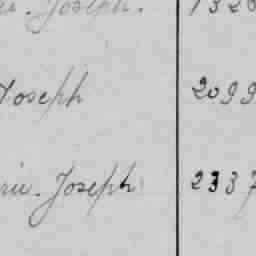 Joseph. 1326
Joseph 2099
rie. Joseph 2337